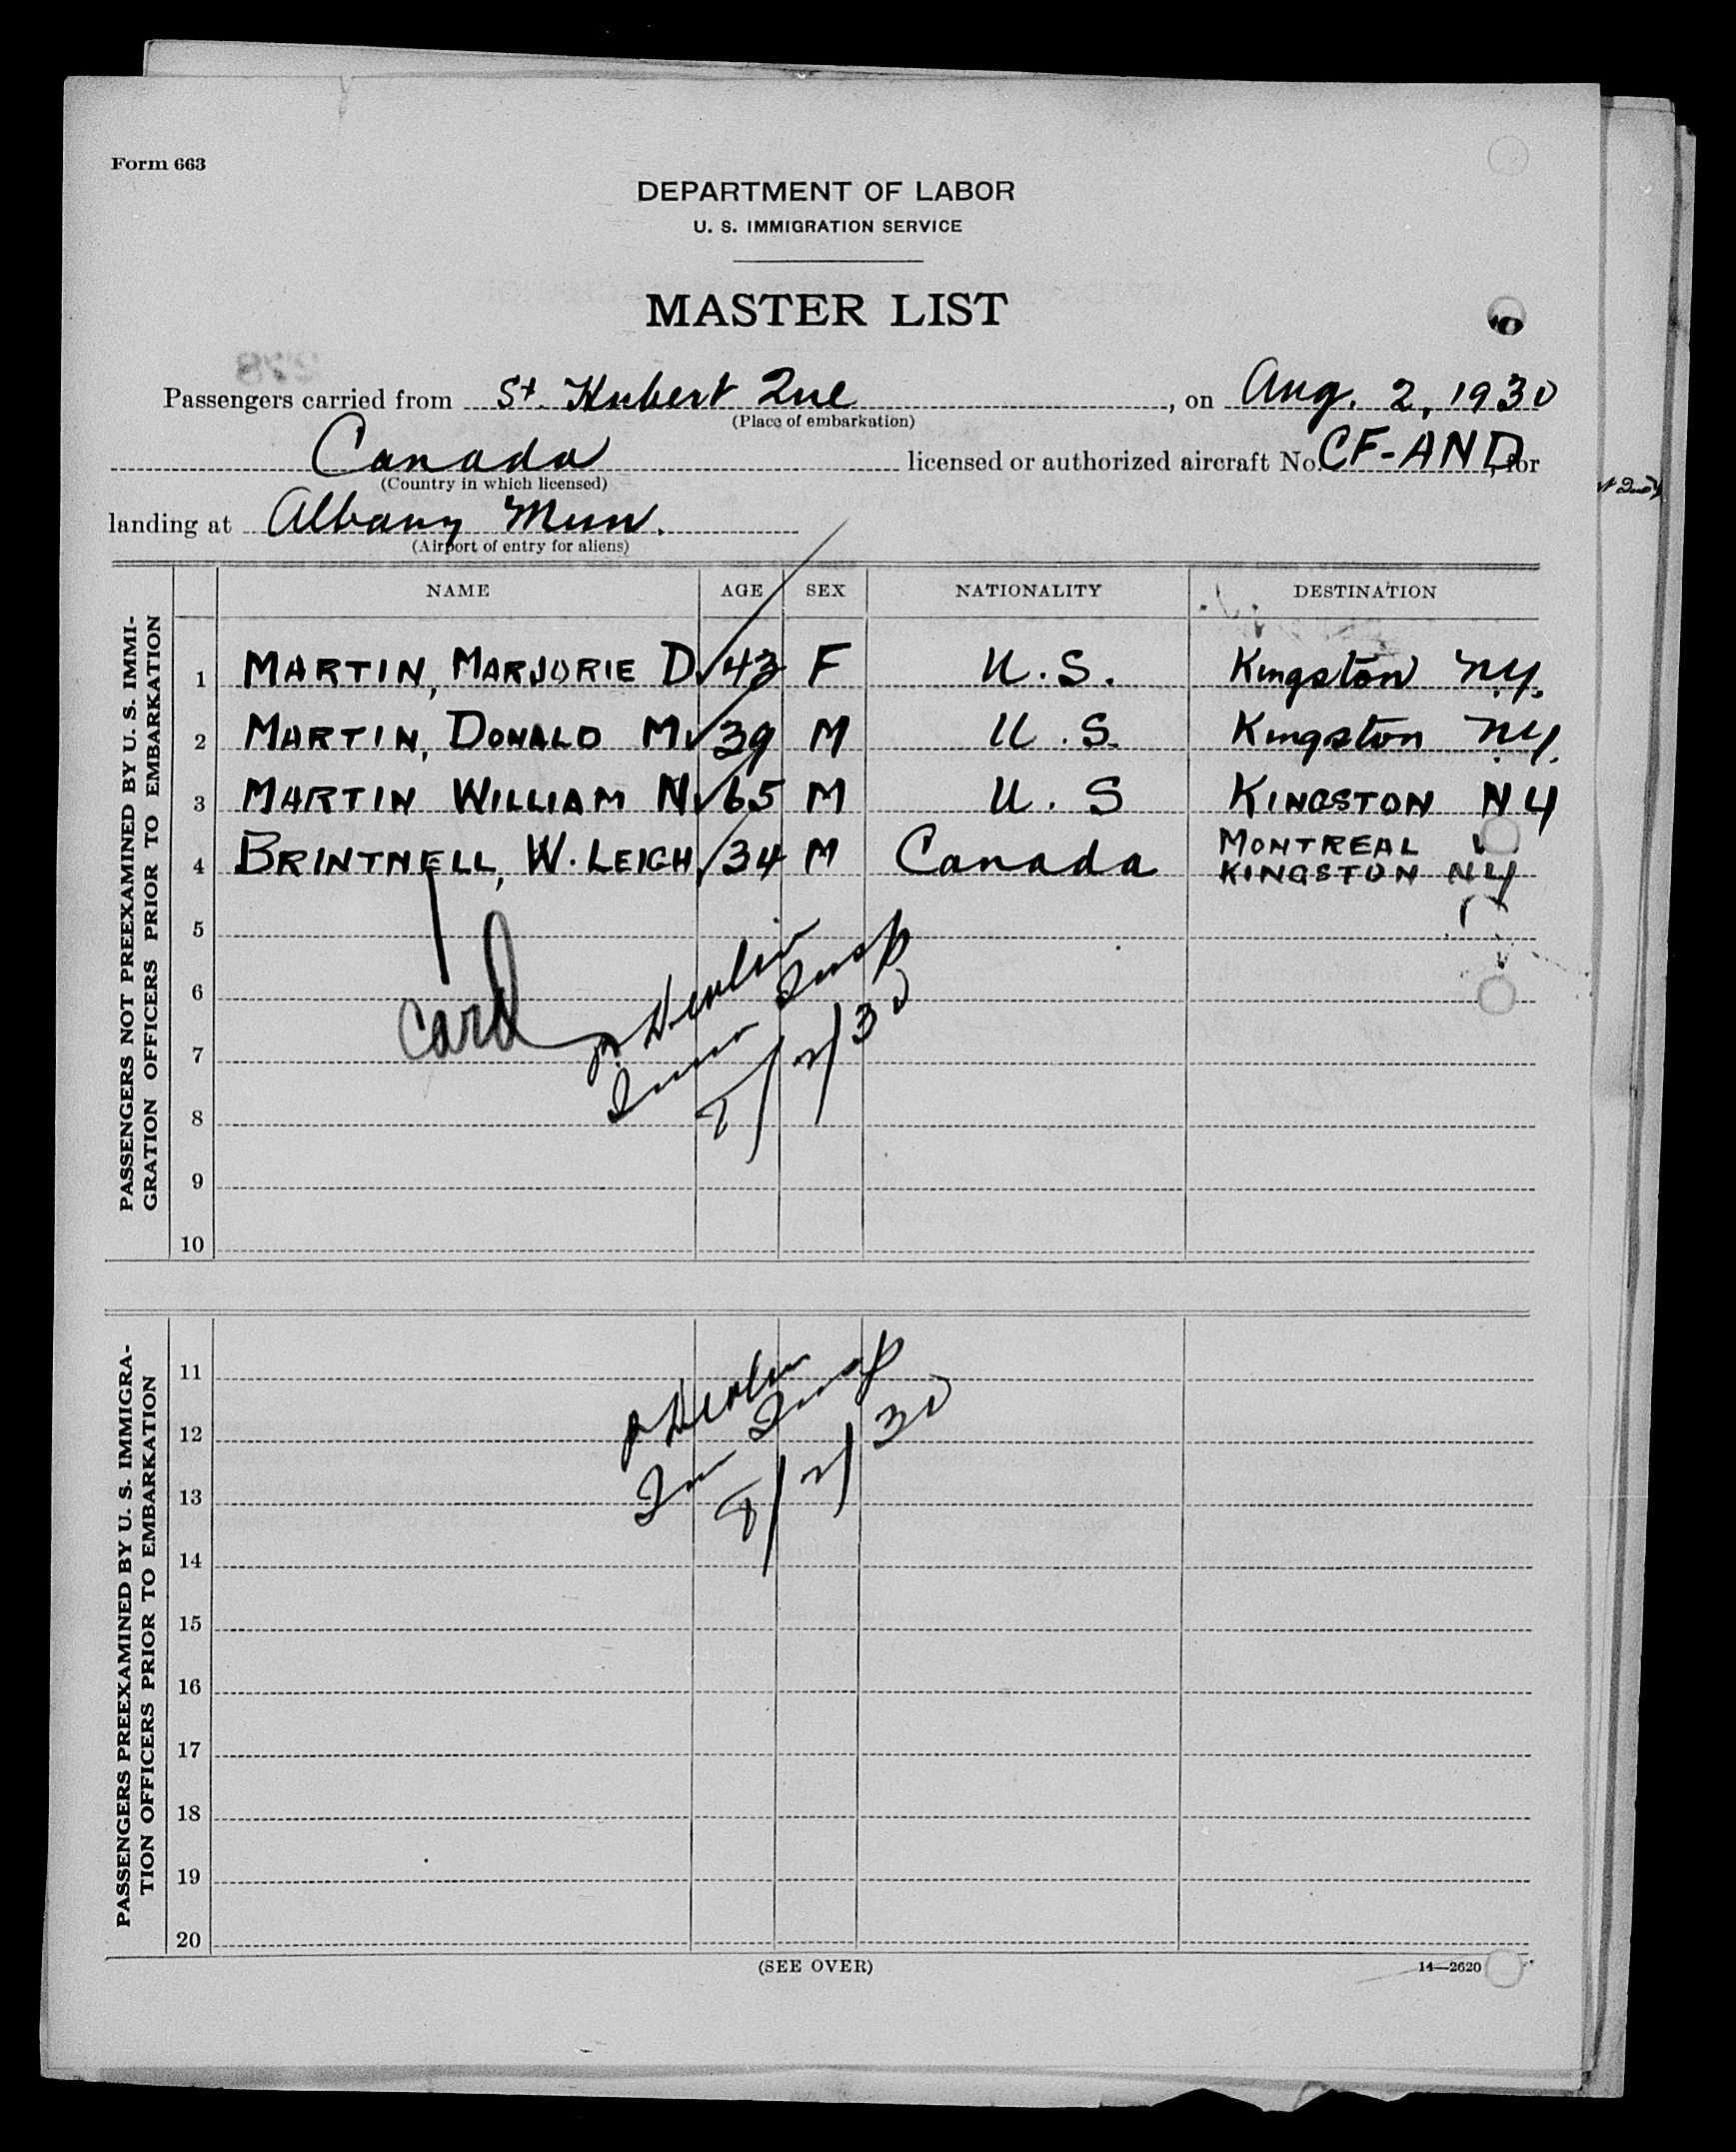 Form 663
DEPARTMENT OF LABOR
U. S. IMMIGRATION SERVICE
MASTER LIST
Passengers carried from St. Hubert Que, on Aug. 2, 1930
(Place of embarkation)
Canada licensed or authorized aircraft No. CF-AND, for
(Country in which licensed)
landing at Albany Mun.
(Airport of entry for aliens)
PASSENGERS NOT PREEXAMINED BY U. S. IMMI-
GRATION OFFICERS PRIOR TO EMBARKATION
NAME AGE SEX NATIONALITY DESTINATION
1 MARTIN, MARJORIE D. 43 F U.S. Kingston N.Y.
2 MARTIN, DONALD M. 39 M U.S. Kingston N.Y.
3 MARTIN WILLIAM N. 65 M U.S KINGSTON NY
4 BRINTNELL, W. LEIGH 34 M Canada MONTREAL
KINGSTON NY
5
6
card
7
Devlin
Imm Insp
8/2/30
8
9
10
PASSENGERS PREEXAMINED BY U. S. IMMIGRA-
TION OFFICERS PRIOR TO EMBARKATION
11
12
13
Devlin
Im Insp
8/2/30
14
15
16
17
18
19
20
(SEE OVER)
14—2620